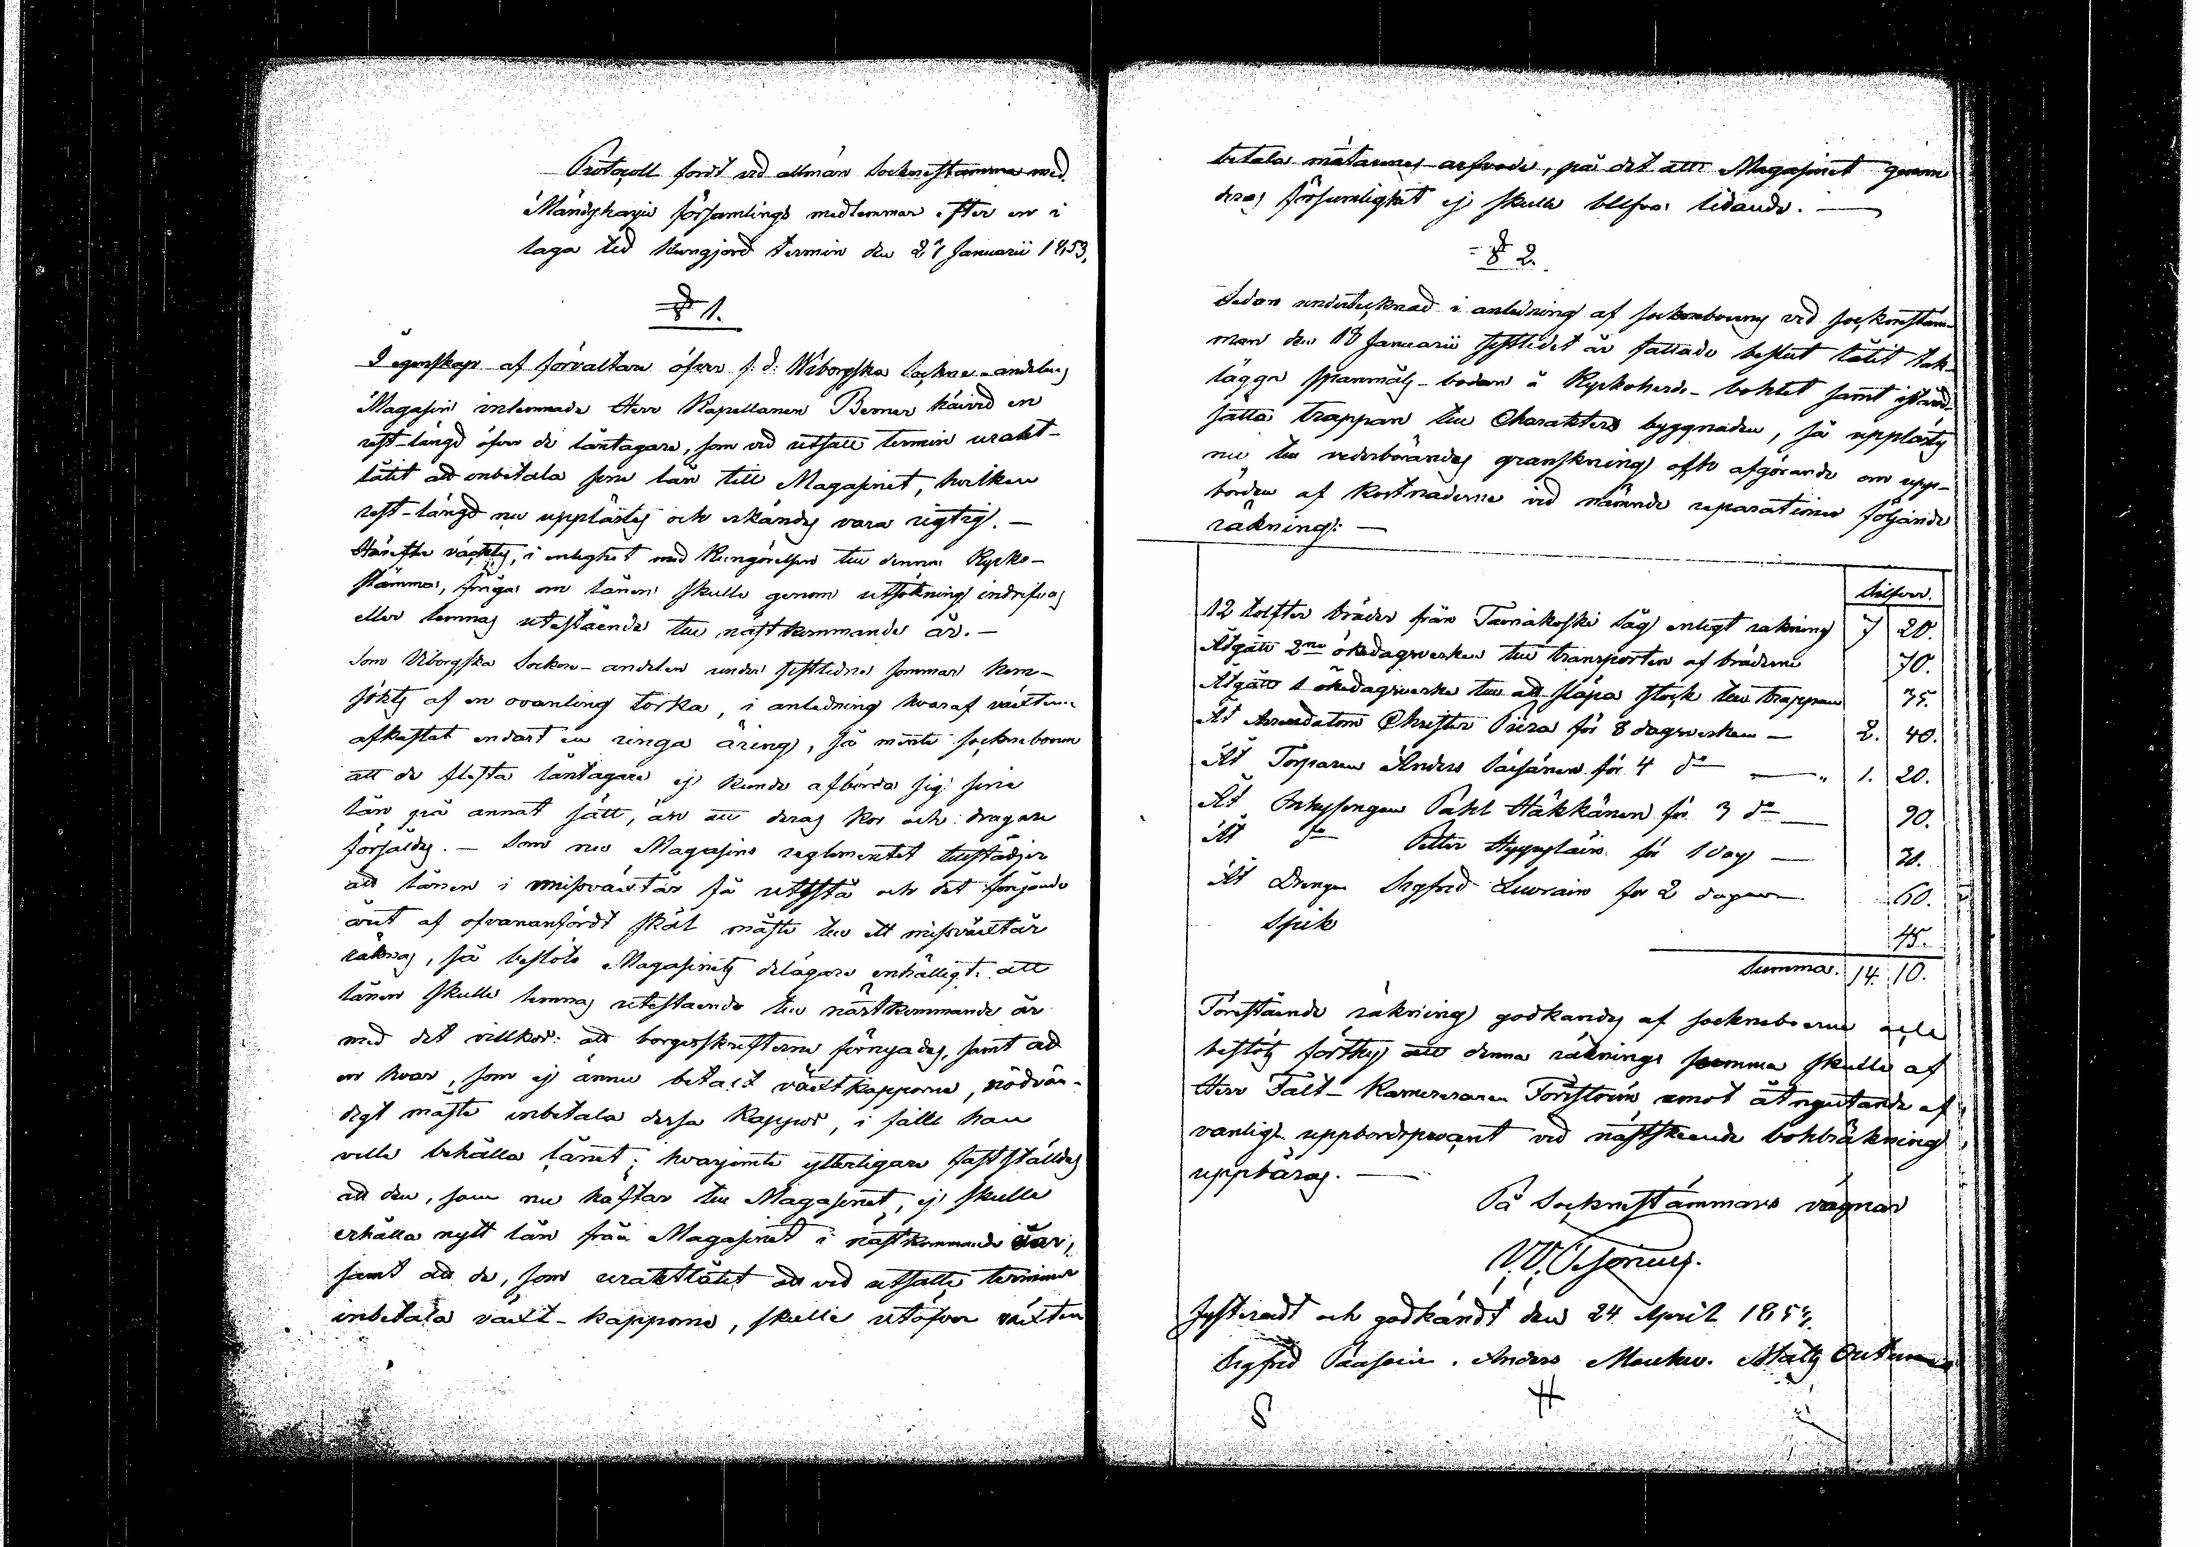 Protocoll fördt vid allmän Socknestämma med
Mändyharju församlings medlemmar efter en i
laga tid kungjord termin den 27 Januarii 1853.
§ 1.
I egenskap af förvaltare öfver f: d: Wiborgska Sockne-andelens
Magasin inlemnade Herr Kapellanen Berner härvid en
rest-längd öfver de låntagare, som vid utsatt termin urakt-
låtit att inbetala sina lån till Magasinet, hvilken
rest-längd nu upplästes och erkändes vara rigtig. —
Härefter väcktes, i enlighet med Kungörelsen till denna Kyrko-
stämma, fråga om lånen skulle genom utsökning indrifvas
eller lemnas utestående till nästkommande år. —
Som Viborgska Sockne-andelen under sistledne sommar hem-
söktes af en ovanling torka, i anledning hvaraf växten
afkastat endast en ringa äring, så mente sockneboerne
att de flesta låntagare ej kunde afbörda sig sina
lån på annat sätt, än att deras kor och dragare
försåldes. — Som nu Magasins reglementet tillstädjer
att lånen i missväxtår få utestå och det
året af ofvananfördt skäl måste till ett missväxtår
räknas, så beslöto Magasinets delägare enhälligt: att
lånen skulle lemnas utestaende till nästkommande år
med det villkor: att borgesskrifterne förnyades, samt att
en hvar, som ej ännu betalt växtkapporne, nödvän-
digt måste inbetala dessa Kappor, i fall han
ville behålla lånet; hvarjemte ytterligare fastställdes
att den, som nu häftar till Magasinet, ej skulle
erhålla nytt lån från Magasinet i nästkommande vår,
samt att de, som uraktlåtit att vid utsatte terminer
inbetala växt-kapporne, skulle utöfver växten
betala mätarnes arfvode, på det att Magasinet genom
deras försumlighet ej skulle blifva lidande. —
§ 2.
Sedan undertecknad i anledning af sockneboernes vid sockenstäm-
man den 18 Januarii sistlidet år fattade beslut låtit tak-
lägga spanmåls-boden å Kyrkoherde-bohlet samt istånd-
sätta trappan till Charakters byggnaden, så upplästes
nu till vederbörandes granskning och afgörande om upp-
börden af kostnaderne vid nämnde reparationer följande
räkning: —
Silfver.
12 tolfter bräder från Tainakoski såg enligt räkning 7 20.
Åtgått 2ne ökedagsverken till transporten af bräderne 70.
Åtgått 1 ökedagsverke till att släpa stock till trappan 35.
Åt Arrendatorn Christer Piira för 8 dagsverken — 2. 40.
Åt Torparen Anders Paisänen för 4 do — 1. 20.
Åt Inhysingen Påhl Häkkänen för 3 do — 90.
Åt do Petter för 1 dag — 30.
Åt Drengen Sigfred Luurain för 2 dagar 60.
Spik 45.
Summa. 14. 10.
Förestående räkning godkändes af sockneboerne och
beslöts förthy att denna räknings summa skulle af
Herr Fält-Kamereraren Forsström emot åtnjutande af
vanligt uppbördsprocent vid nästskeende bohlräkning
uppbäras. —
På Socknestämmans vägnar
Justeradt och godkändt den 24 April 1853.
Sigfred Paasoin. Anders Matts
S H